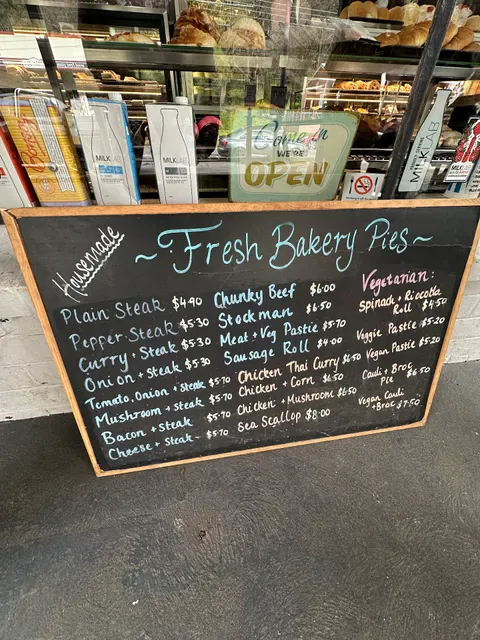 Come in
WE'RE
OPEN
MILKLAB
MILKLAB
MILKLAB
Housemade
~ Fresh Bakery Pies ~
Plain Steak $4.40
Pepper Steak $5.30
Curry + Steak $5.30
Onion + Steak $5.30
Tomato, Onion + Steak $5.70
Mushroom + Steak $5.70
Bacon + Steak $5.70
Cheese + Steak - $5.70
Chunky Beef $6.00
Stockman $6.50
Meat + Veg Pastie $5.70
Sausage Roll $4.00
Chicken Thai Curry $6.50
Chicken + Corn $6.50
Chicken + Mushroom $6.50
Sea Scallop $8.00
Vegetarian:
Spinach + Riccotta
Roll $4.50
Veggie Pastie $5.20
Vegan Pastie $5.20
Cauli + Broc
Pie $6.50
Vegan Cauli
+ Broc $7.50